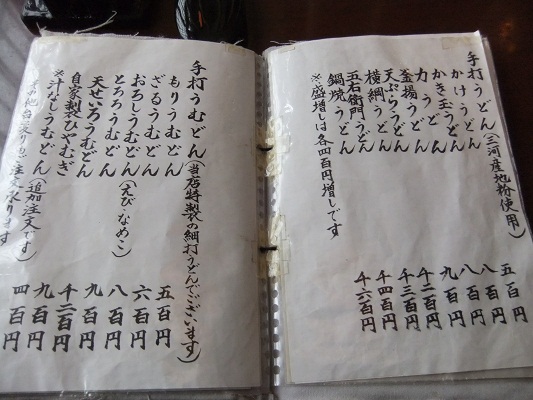 手打うどん(三河産地粉使用)
かけうどん 五百円
かき玉うどん 八百円
力うどん 八百円
釜揚うどん 九百円
天ぷらうどん 千二百円
横綱うどん 千三百円
五右衛門うどん 千四百円
鍋焼うどん 千六百円
※盛増しは各四百円増しです
手打うむどん(当店特製の細打うどんでございます)
もりうむどん 五百円
ざるうむどん 六百円
おろしうむどん 八百円
とろろうむどん(及びなめこ) 九百円
天せいろうむどん 千二百円
自家製ひやむぎ 九百円
※汁なしうむどん(追加注文です) 四百円